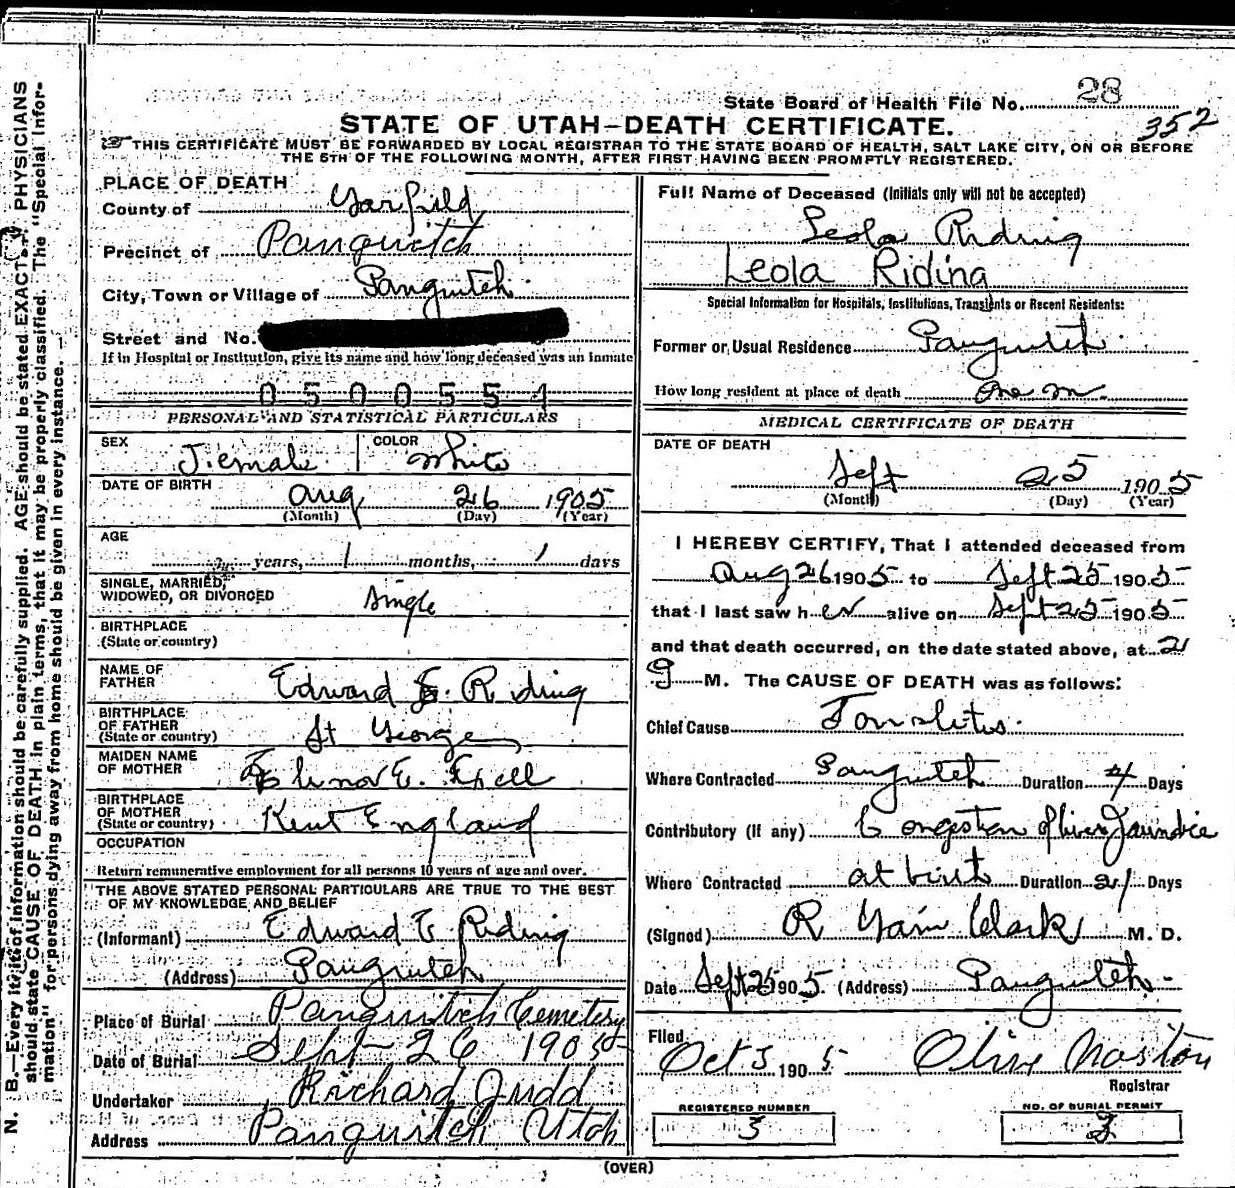 State Board of Health File No. 28
352
STATE OF UTAH—DEATH CERTIFICATE.
THIS CERTIFICATE MUST BE FORWARDED BY LOCAL REGISTRAR TO THE STATE BOARD OF HEALTH, SALT LAKE CITY, ON OR BEFORE
THE 5TH OF THE FOLLOWING MONTH, AFTER FIRST HAVING BEEN PROMPTLY REGISTERED.
N. B.—Every item of information should be carefully supplied. AGE should be stated EXACTLY. PHYSICIANS
should state CAUSE OF DEATH in plain terms, that it may be properly classified. The "Special Infor-
mation" for persons dying away from home should be given in every instance.
PLACE OF DEATH
County of Garfield
Precinct of Panguitch
City, Town or Village of Panguitch
Street and No.
If in Hospital or Institution, give its name and how long deceased was an inmate
0500554
PERSONAL AND STATISTICAL PARTICULARS
SEX Female COLOR White
DATE OF BIRTH Aug 26 1905
(Month) (Day) (Year)
AGE
years, 1 months, 1 days
SINGLE, MARRIED,
WIDOWED, OR DIVORCED Single
BIRTHPLACE
(State or country)
NAME OF
FATHER Edward E. Riding
BIRTHPLACE
OF FATHER
(State or country) St George
MAIDEN NAME
OF MOTHER
BIRTHPLACE
OF MOTHER
(State or country) Kent England
OCCUPATION
Return remunerative employment for all persons 10 years of age and over.
THE ABOVE STATED PERSONAL PARTICULARS ARE TRUE TO THE BEST
OF MY KNOWLEDGE AND BELIEF
(Informant) Edward E Riding
(Address) Panguitch
Place of Burial Panguitch Cemetery
Date of Burial Sept - 26 1905
Undertaker Richard Judd
Address Panguitch Utah
Full Name of Deceased (Initials only will not be accepted)
Leola Riding
Leola Riding
Special Information for Hospitals, Institutions, Transients or Recent Residents:
Former or Usual Residence Panguitch
How long resident at place of death One m.
MEDICAL CERTIFICATE OF DEATH
DATE OF DEATH
Sept 25 1905
(Month) (Day) (Year)
I HEREBY CERTIFY, That I attended deceased from
Aug 26 1905 to Sept 25 1905
that I last saw her alive on Sept 25 1905
and that death occurred, on the date stated above, at 2
M. The CAUSE OF DEATH was as follows:
Chief Cause Tonslitus.
Where Contracted Panguitch Duration 4 Days
Contributory (if any) Congestion of liver Jaundice
Where Contracted at birth Duration 21 Days
(Signed) R Garn Clark M. D.
Date Sept 25 1905 (Address) Panguitch
Filed Oct 5 1905 Olive
Registrar
REGISTERED NUMBER
5
NO. OF BURIAL PERMIT
3
(OVER)